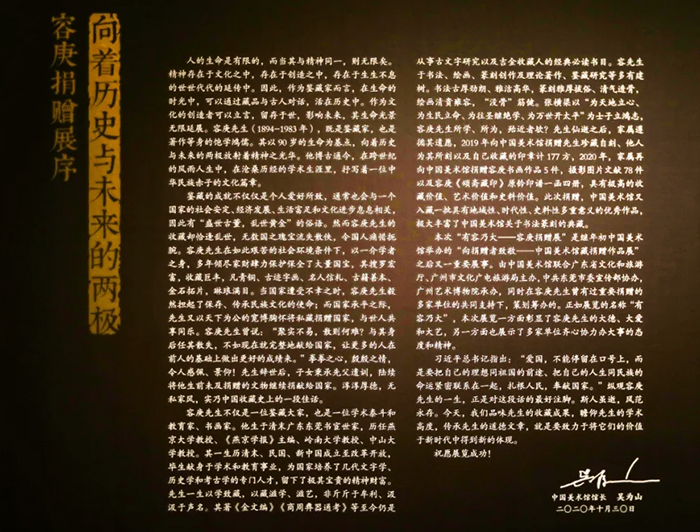 向着历史与未来的两极
容庚捐赠展序
人的生命是有限的,而当其与精神同一,则无限矣。
精神存在于文化之中,存在于创造之中,存在于生生不息
的世世代代的延传中。因此,作为鉴藏家而言,在生命的
时光中,可以通过藏品与古人对话,活在历史中。作为文
化的创造者可以立言,留存于世,影响未来,其生命光景
无限延展。容庚先生(1894-1983年),既是鉴藏家,也是
著作等身的饱学鸿儒。其以90岁的生命为基点,向着历史
与未来的两极放射着精神之光华。他博古通今,在跨世纪
的风雨人生中,在沧桑历经的学术生涯里,抒写着一位中
华民族赤子的文化篇章。
鉴藏的成就不仅仅是个人爱好所致,通常也会与一个
国家的社会安定、经济发展、生活富足和文化进步息息相关,
因此有“盛世古董,乱世黄金”的俗语。然而容庚先生的
收藏却恰逢乱世,无数国之瑰宝流失散佚,令国人痛惜扼
腕。容庚先生在如此艰苦的社会环境条件下,以一介学者
之身,多年倾尽家财肆力保护保全了大量国宝,其搜罗宏
富,收藏巨丰,凡青铜、古迹字画、名人信札、古籍善本、
金石拓片,琳琅满目。当国家遭受不幸之时,容庚先生毅
然担起了保存、传承民族文化的使命;而国家承平之际,
先生又以天下为公的宽博胸怀将私藏捐赠国家,与世人共
享同乐。容庚先生曾说:“聚实不易,散则何难?与其身
后任其散失,不如现在就完整地献给国家,让更多的人在
前人的基础上做出更好的成绩来。”拳拳之心,殷殷之情,
令人感佩、景仰!先生辞世后,子女秉承先父遗训,陆续
将他生前未及捐赠的文物继续捐献给国家。淳淳厚德,无
私家风,实乃中国收藏史上的一段佳话。
容庚先生不仅是一位鉴藏大家,也是一位学术泰斗和
教育家、书画家。他生于清末广东东莞书宦世家,历任燕
京大学教授、《燕京学报》主编、岭南大学教授、中山大
学教授。其一生历清末、民国、新中国成立至改革开放,
毕生献身于学术和教育事业,为国家培养了几代文字学、
历史学和考古学的专门人才,留下了极其宝贵的精神财富。
先生一生以学致藏,以藏滋学、滋艺,非斤斤于牟利、汲
汲于声名。其著《金文编》《商周彝器通考》等至今仍是
从事古文字研究以及吉金收藏人的经典必读书目。容先生
于书法、绘画、篆刻创作及理论著作、鉴藏研究等多有建
树。书法古厚劲朗、雅洁高华,篆刻雅厚拔俗、清气远骨,
绘画清贵雍容,“没骨”筋健。张横渠以“为天地立心、
为生民立命、为往圣继绝学、为万世开太平”为士子立鸿志,
容庚先生所学、所为,殆近者欤?先生仙逝之后,家属遵
德其遗愿,2019年向中国美术馆捐赠先生珍藏自刻、他人
为其所刻以及自己收藏的印章计177方,2020年,家属再
向中国美术馆捐赠容庚书画作品5件,摄影图片文献78件
以及容庚《颂斋藏印》原钤印谱一函四册,具有极高的收
藏价值、艺术价值和史料价值。此次捐赠,中国美术馆又
入藏一批具有地域性、时代性、史料性多重意义的优秀作品,
极大丰富了中国美术馆关于书法篆刻的典藏。
本次“有容乃大——容庚捐赠展”是继年初中国美术
馆举办的“向捐赠者致敬——中国美术馆藏捐赠作品展”
之后又一重要展事,由中国美术馆联合广东省文化和旅游
厅、广州市文化广电旅游局主办,中共东莞市委宣传部协办、
广州艺术博物院承办,同时在容庚先生曾有过重要捐赠的
多家单位的共同支持下,策划筹办的。正如展览的名称“有
容乃大”,本次展览一方面彰显了容庚先生的大德、大爱
和大艺,另一方面也展示了多家单位齐心协力办大事的态
度和精神。
习近平总书记指出:“爱国,不能停留在口号上,而
是要把自己的理想同祖国的前途、把自己的人生同民族的
命运紧密联系在一起,扎根人民,奉献国家。”纵观容庚
先生的一生,正是对这段话的最好注脚。斯人虽逝,风范
永存。今天,我们品味先生的收藏成果,瞻仰先生的学术
高度,传承先生的道德文章,就是要致力于将它们的价值
于新时代中得到新的体现。
祝愿展览成功!
中国美术馆馆长 吴为山
二〇二〇年十月三〇日